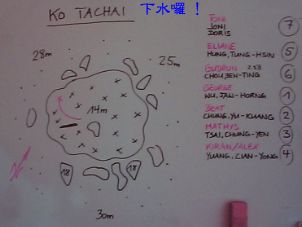 KO TACHAI
下水囉！
28m
25m
14m
18
18
30m
TONI
JONI
DORIS
7
ELIANE
HUNG, TUNG-HSIN
5
GUDRUN
CHOU, BEN-TING
6
GEORGE
WU, JAN-HORNG
1
BEAT
CHUNG, YU-KUANG
2
MATHYS
TSAI, CHUNG-YEN
3
KIRAN/ALEX
YUANG, CIAN-YONG
4